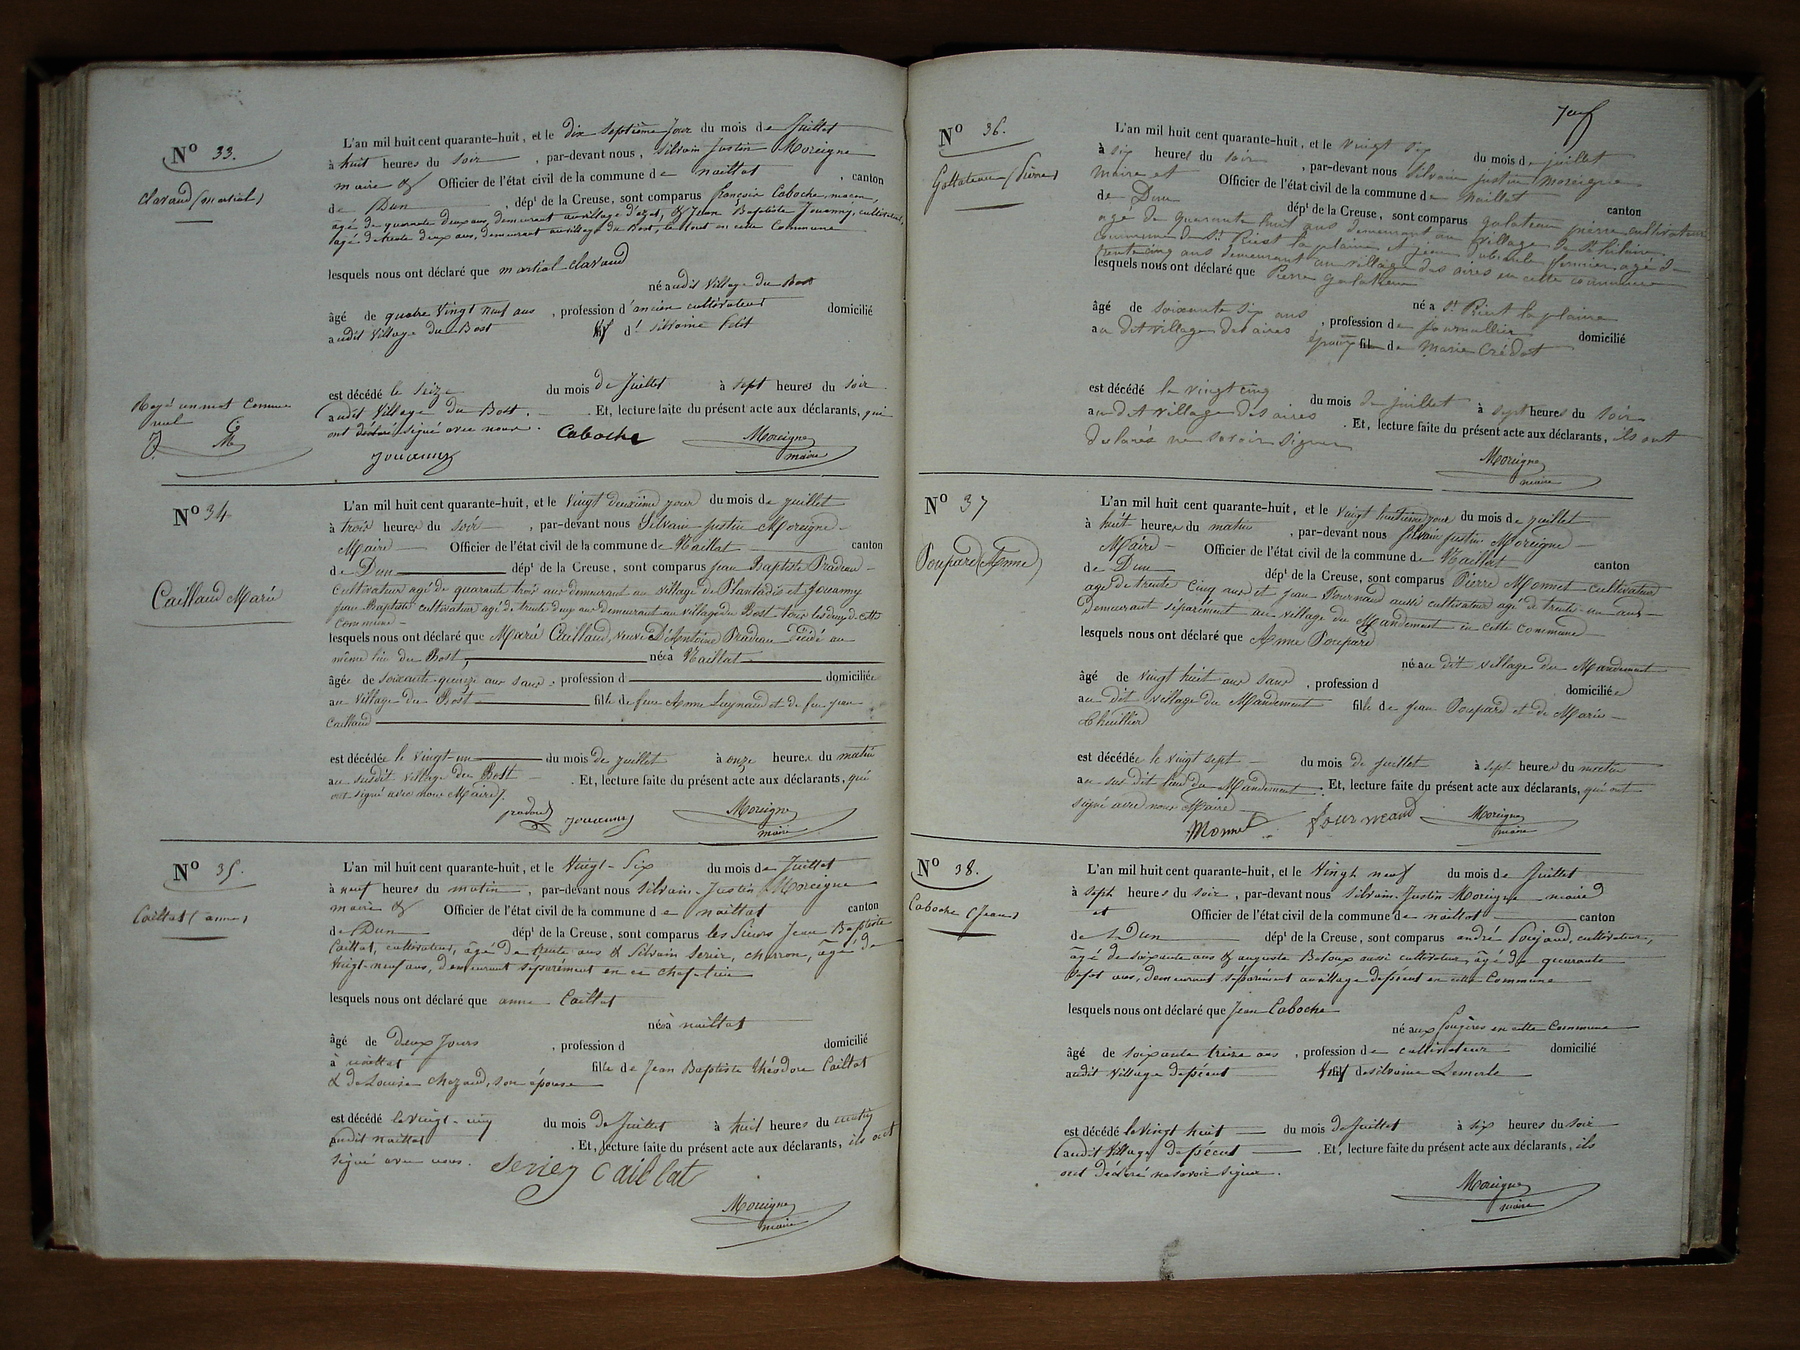 N° 33.
Claraud (martial)
L'an mil huit cent quarante-huit, et le dix septième jour du mois de Juillet
à huit heures du soir, par-devant nous, Silvain Justin Moreigne
maire & Officier de l'état civil de la commune de naillat, canton
de Dun, dépt de la Creuse, sont comparus françois Caboche, macon,
agé de quarante deux ans, demeurant au village d', & Jean Baptiste Jouanny, cultivateur,
agé de trente deux ans, demeurant au village du Bost, le tout en cette Commune
lesquels nous ont déclaré que martial Claraud
né audit Village du Bost
âgé de quatre Vingt neuf ans, profession d'ancien cultivateur domicilié
audit Village du Bost d' silvaine Petit
est décédé le seize du mois de Juillet à sept heures du soir
audit Village du Bost. Et, lecture faite du présent acte aux déclarants, qui
ont signé avec nous.
Rayé un mot comme
nul
Caboche
Moreigne
maire
Jouanny
N° 34
Caillaud Marie
L'an mil huit cent quarante-huit, et le Vingt deuxième jour du mois de juillet
à trois heures du soir, par-devant nous Silvain justin Moreigne
Maire Officier de l'état civil de la commune de Naillat canton
de Dun dépt de la Creuse, sont comparus jean Baptiste Pradeau
Cultivateur agé de quarante trois ans demeurant au village de Plantadis et Jouanny
jean Baptiste cultivateur agé de trente deux ans demeurant au village du Bost tous les deux de cette
commune
lesquels nous ont déclaré que Marie Caillaud, veuve D'Antoine Pradeau décédé au
même lieu du Bost, née à Naillat
âgée de soixante quinze ans sans, profession d domiciliée
au village du Bost fille de feue Anne et de feu jean
Caillaud
est décédée le vingt-un du mois de juillet à onze heures du matin
au susdit village du Bost. Et, lecture faite du présent acte aux déclarants, qui
ont signé avec nous Maire
Pradeau
Jouanny
Moreigne
maire
N° 35.
Caillat (anne)
L'an mil huit cent quarante-huit, et le Vingt-Six du mois de Juillet
à neuf heures du matin, par-devant nous Silvain-Justin Moreigne
maire & Officier de l'état civil de la commune de naillat canton
de Dun dépt de la Creuse, sont comparus les Sieurs Jean Baptiste
Caillat, cultivateur, âgé de trente ans & Silvain Seriey, charron, agé de
Vingt-neuf ans, demeurant séparément en ce chef-lieu
lesquels nous ont déclaré que anne Caillat
née à naillat
âgé de deux Jours, profession d domicilié
à naillat fille de Jean Baptiste théodore Caillat
& de Louise Chazaud, son épouse
est décédé le vingt-cinq du mois de Juillet à huit heures du matin
audit naillat. Et, lecture faite du présent acte aux déclarants, ils ont
signé avec nous.
Seriey Caillat
Moreigne
maire
N° 36.
Gallateau (Pierre)
L'an mil huit cent quarante-huit, et le vingt six du mois de juillet
à six heures du soir, par-devant nous Silvain justin moreigne
maire et Officier de l'état civil de la commune de Naillat canton
de Dun dépt de la Creuse, sont comparus galateau pierre cultivateur
agé de quarante huit ans demeurant au village de St hilaire
commune de St Priest la plaine et jean fermier agé de
trente cinq ans demeurant au village des aires en cette commune
lesquels nous ont déclaré que Pierre galateau
âgé de soixante six ans né a St Priest la plaine
au dit village des aires, profession de journallier domicilié
époux fil de Marie Crédot
est décédé le vingt cinq du mois de juillet à sept heures du soir
au dit village des aires. Et, lecture faite du présent acte aux déclarants, ils ont
declarés ne savoir signer
Moreigne
maire
N° 37
Poupard (Anne)
L'an mil huit cent quarante-huit, et le Vingt huitième jour du mois de juillet
à huit heures du matin, par-devant nous Silvain justin Moreigne
Maire Officier de l'état civil de la commune de Naillat canton
de Dun dépt de la Creuse, sont comparus Pierre Monnet cultivateur
agé de trente cinq ans et jean Fournaud aussi cultivateur agé de trente-un ans
demeurant séparément au village du Mandement en cette commune
lesquels nous ont déclaré que Anne Poupard
née au dit village du Mandement
âgé de vingt huit ans sans, profession d domiciliée
au dit village du Mandement fille de jean Poupard et de Marie
Theillier
est décédée le vingt sept du mois de juillet à sept heures du matin
au sus dit lieu du Mandement. Et, lecture faite du présent acte aux déclarants, qui ont
signé avec nous Maire
Monnet
fourneaud
Moreigne
maire
N° 38.
Caboche (Jean)
L'an mil huit cent quarante-huit, et le Vingt neuf du mois de Juillet
à sept heures du soir, par-devant nous Silvain-Justin Moreigne maire
et Officier de l'état civil de la commune de naillat canton
de Dun dépt de la Creuse, sont comparus andré Poujaud, cultivateur,
âgé de soixante ans & auguste Beloux aussi cultivateur, âgé de quarante
sept ans, demeurant séparément au village de en cette Commune
lesquels nous ont déclaré que Jean Caboche
né aux fougères en cette Commune
âgé de soixante treize ans, profession de cultivateur domicilié
audit Village de de silvaine Lemerle
est décédé le vingt huit du mois de Juillet à six heures du soir
audit Village de. Et, lecture faite du présent acte aux déclarants, ils
ont déclaré ne savoir signer.
Moreigne
maire